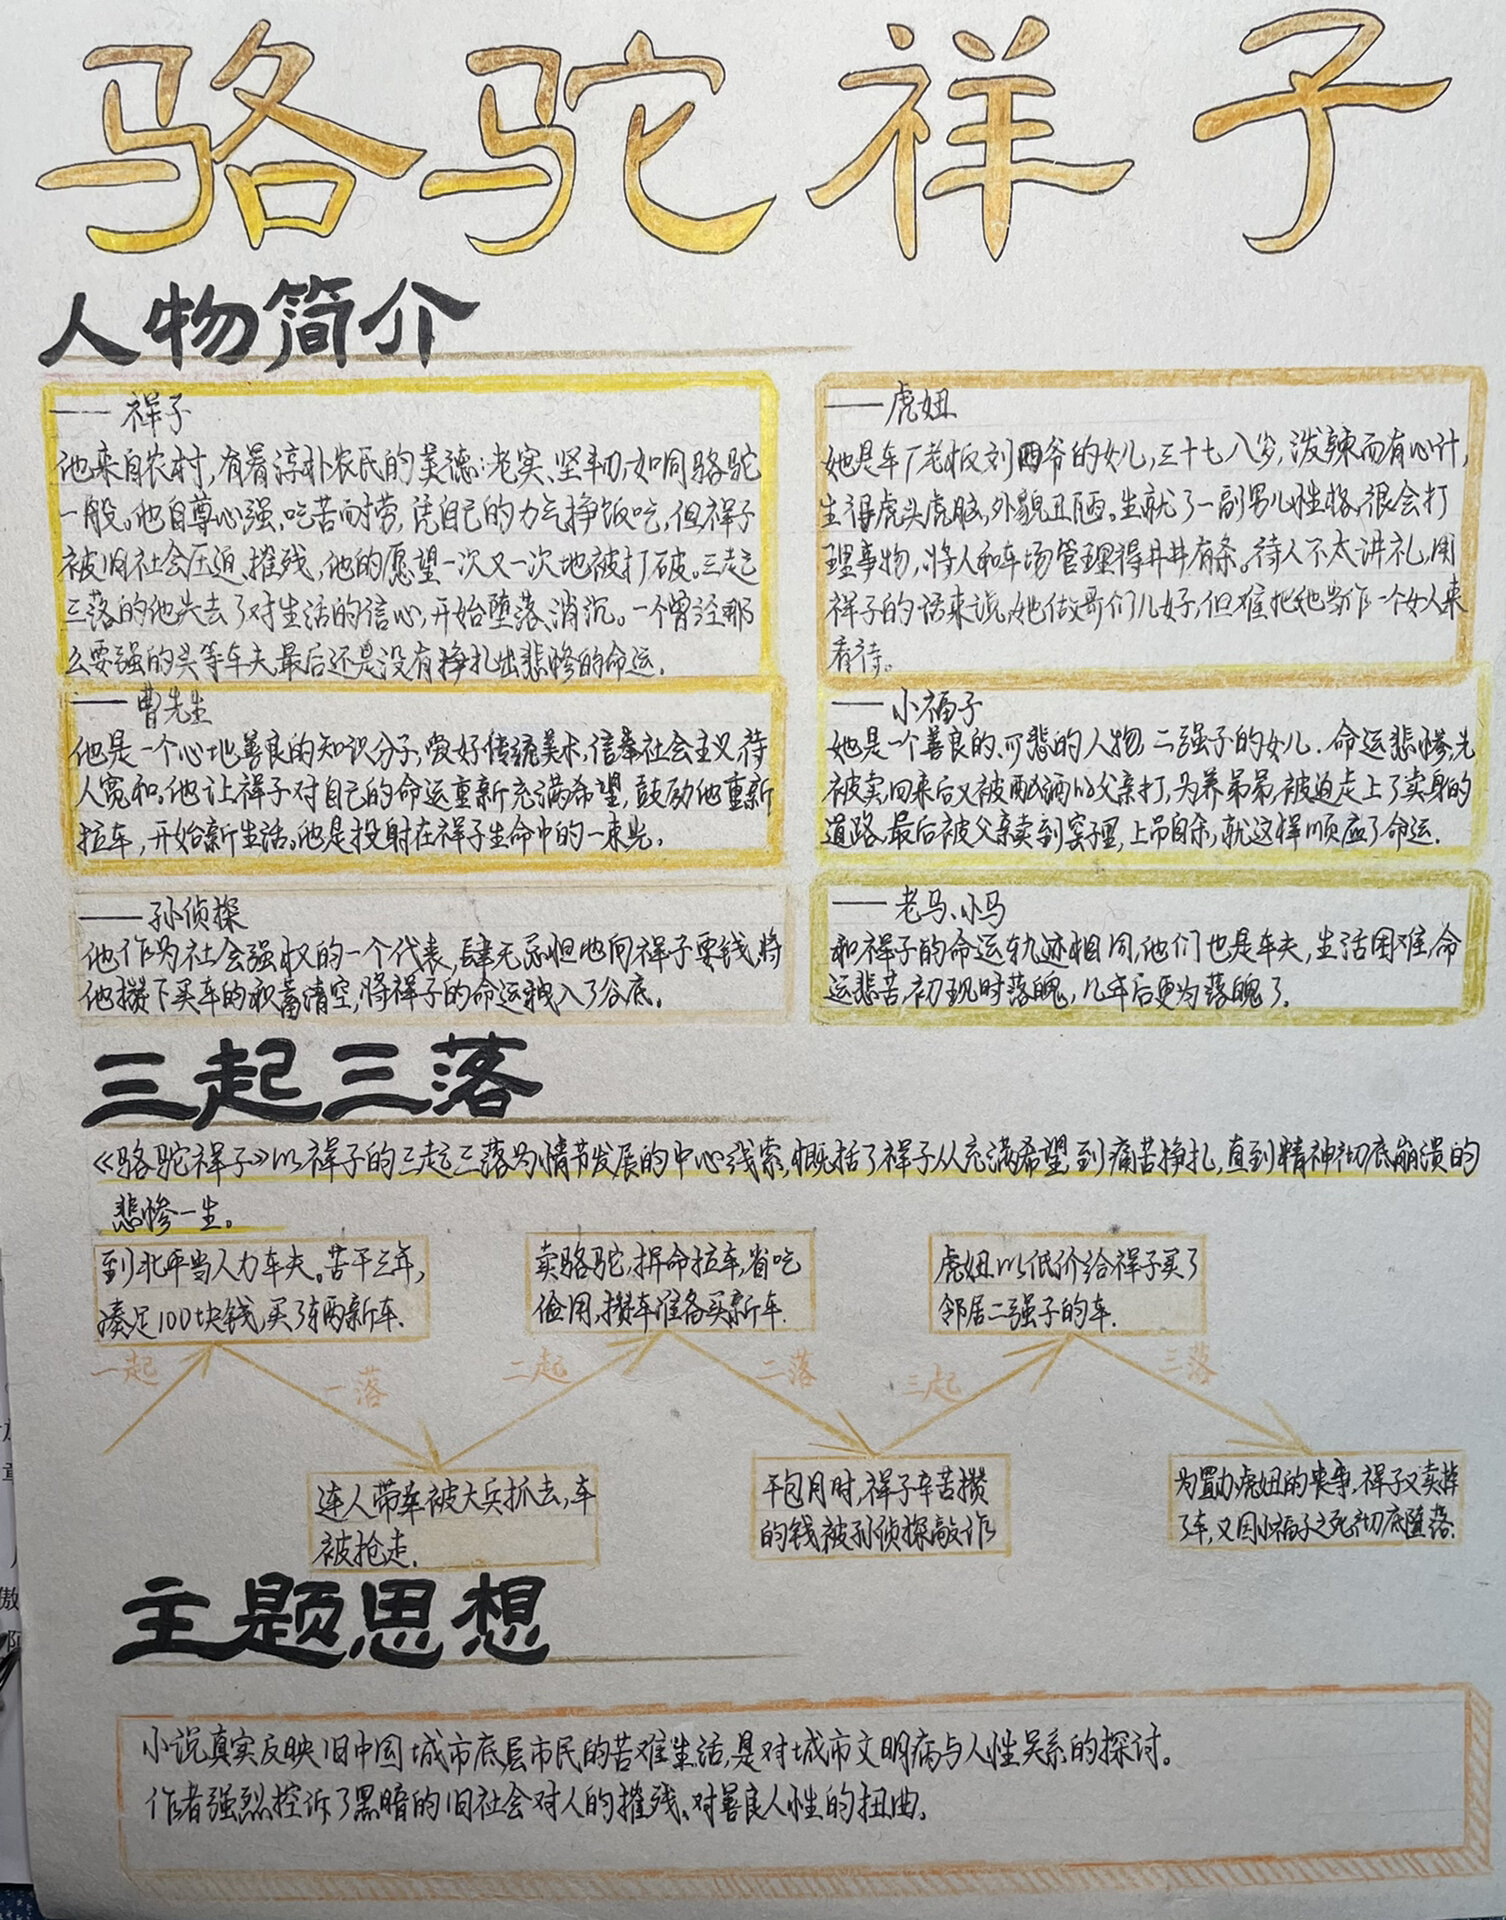 骆驼祥子
人物简介
——祥子
他来自农村,有着淳朴农民的美德:老实、坚韧,如同骆驼
一般。他自尊心强,吃苦耐劳,凭自己的力气挣饭吃,但祥子
被旧社会压迫、摧残,他的愿望一次又一次地被打破。三起
三落的他失去了对生活的信心,开始堕落、消沉。一个曾经那
么要强的头等车夫,最后还是没有挣扎出悲惨的命运.
——虎妞
她是车厂老板刘四爷的女儿,三十七八岁,泼辣而有心计,
生得虎头虎脑,外貌丑陋。生就了一副男儿性格,很会打
理事物,将人和车场管理得井井有条。待人不太讲礼,用
祥子的话来说,她做哥们儿好,但难把她当作一个女人来
看待。
——曹先生
他是一个心地善良的知识分子,爱好传统美术,信奉社会主义,待
人宽和。他让祥子对自己的命运重新充满希望,鼓励他重新
拉车,开始新生活。他是投射在祥子生命中的一束光.
——小福子
她是一个善良的、可悲的人物,二强子的女儿.命运悲惨,先
被卖,回来后又被酗酒的父亲打,为养弟弟,被迫走上了卖身的
道路.最后被父亲卖到窑子里,上吊自杀,就这样顺应了命运.
——孙侦探
他作为社会强权的一个代表,肆无忌惮地向祥子要钱,将
他攒下买车的积蓄清空,将祥子的命运拽入了谷底。
——老马、小马
和祥子的命运轨迹相同,他们也是车夫,生活困难,命
运悲苦.初现时落魄,几年后更为落魄了.
三起三落
《骆驼祥子》以祥子的三起三落为情节发展的中心线索,概括了祥子从充满希望到痛苦挣扎,直到精神彻底崩溃的
悲惨一生。
到北平当人力车夫。苦干三年,
凑足100块钱,买了辆新车.
卖骆驼,拼命拉车,省吃
俭用,攒车准备买新车.
虎妞以低价给祥子买了
邻居二强子的车.
一起
一落
二起
二落
三起
三落
连人带车被大兵抓去,车
被抢走.
干包月时,祥子辛苦攒
的钱被孙侦探敲诈
为置办虎妞的丧事,祥子又卖掉
了车,又因小福子之死彻底堕落.
主题思想
小说真实反映旧中国城市底层市民的苦难生活,是对城市文明病与人性关系的探讨。
作者强烈控诉了黑暗的旧社会对人的摧残、对善良人性的扭曲。